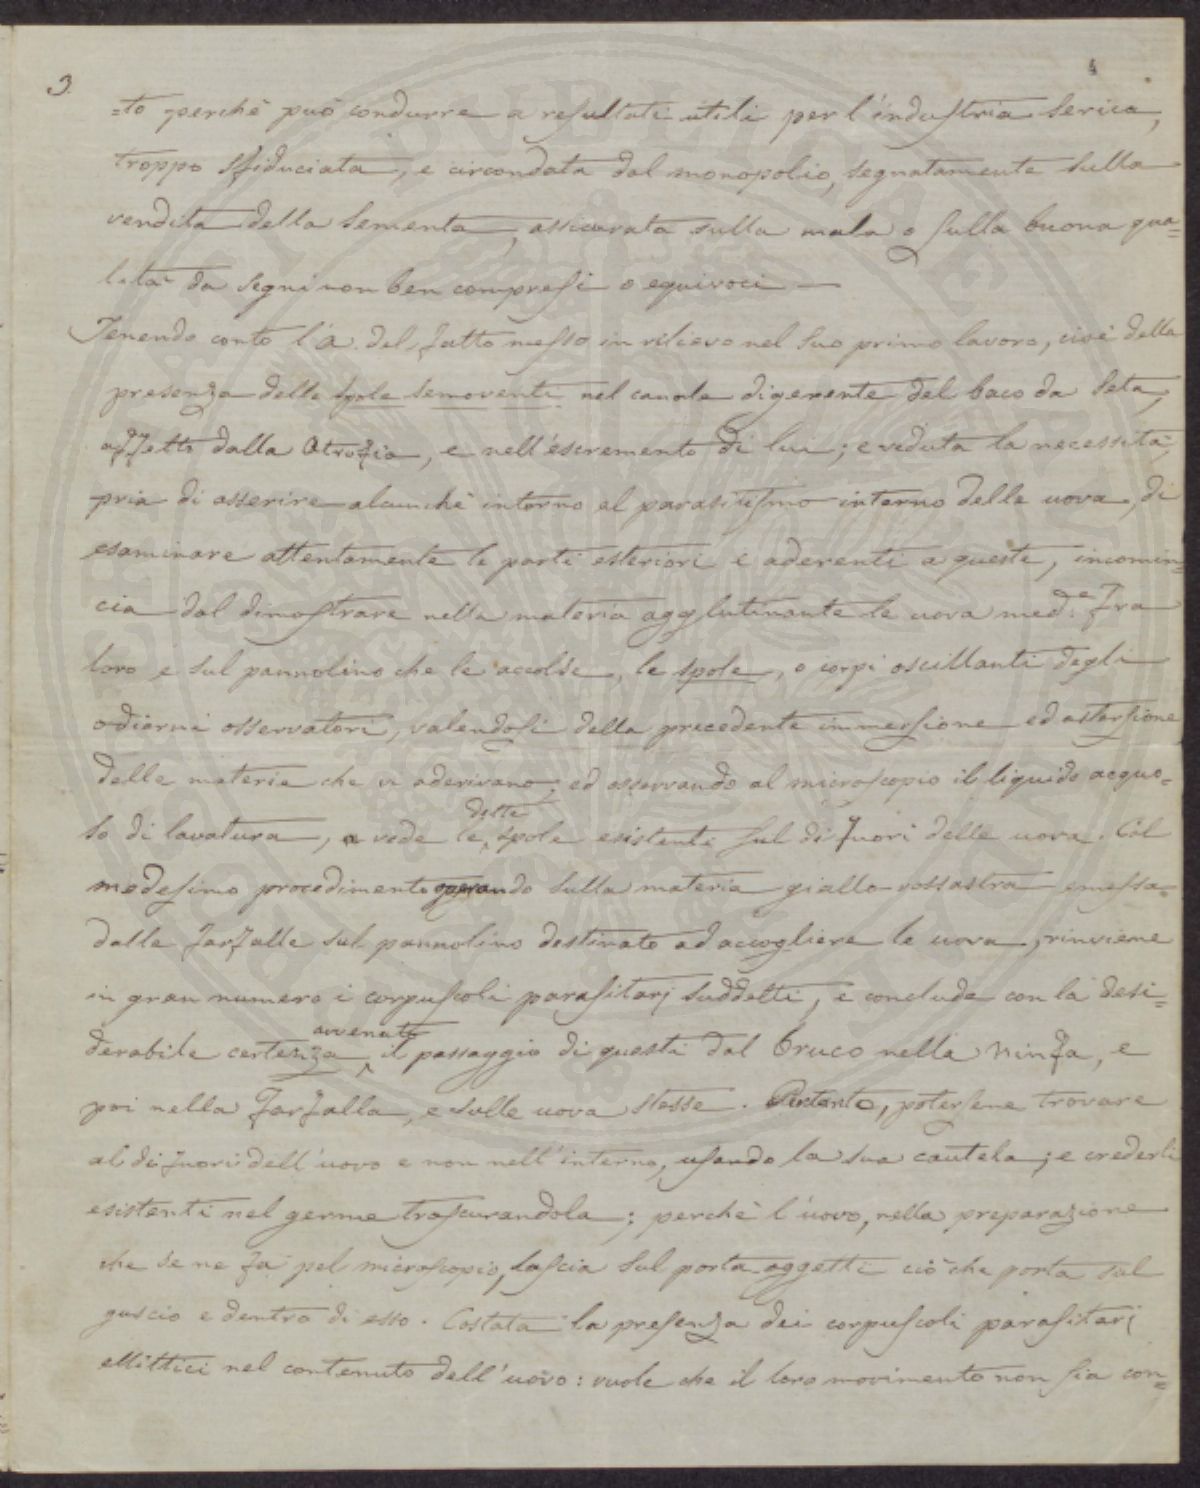 3. 4
=to perchè può condurre a resultati utili per l'industria serica,
troppo sfiduciata, e circondata dal monopolio, segnatamente sulla
vendita della sementa, assicurata sulla mala o sulla buona qua=
lità da segni non ben compresi o equivoci —
Tenendo conto l'A. del fatto messo in rilievo nel suo primo lavoro, cioè della
presenza delle spole semoventi nel canale digerente del baco da seta,
affetto dalla Atrofia, e nell'escremento di lui; e veduta la necessità,
pria di asserire alcunchè intorno al parasitismo interno delle uova, di
esaminare attentamente le parti esteriori e aderenti a queste, incomin=
cia dal dimostrare nella materia agglutinante le uova med.e fra
loro e sul pannolino che le accolse, le spole, o corpi oscillanti degli
odierni osservatori, valendosi della precedente immersione ed astersione
delle materie che vi aderivano; ed osservando al microscopio il liquido acquo=
so di lavatura, e vede le dette spole esistenti sul di fuori delle uova. Col
medesimo procedimento operando sulla materia giallo-rossastra emessa
dalle farfalle sul pannolino destinato ad accogliere le uova, rinviene
in gran numero i corpuscoli parasitarj suddetti, e conclude con la desi=
derabile certezza, avvenuto il passaggio di questi dal bruco nella ninfa, e
poi nella farfalla, e sulle uova stesse. Pertanto, potersene trovare
al di fuori dell'uovo e non nell'interno, usando la sua cautela; e crederli
esistenti nel germe trascurandola; perchè l'uovo, nella preparazione
che se ne fa pel microscopio, lascia sul porta oggetti ciò che porta sul
guscio e dentro di esso. Costata la presenza dei corpuscoli parasitarj
ellittici nel contenuto dell'uovo: vuole che il loro movimento non sia con=